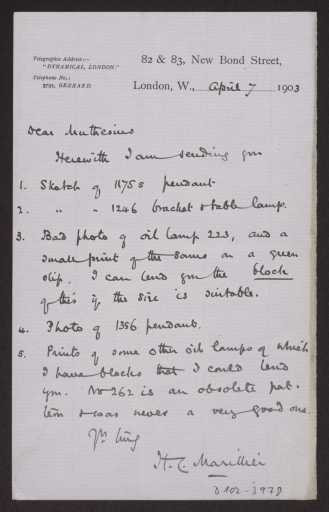 Telegraphic Address:—
"DYNAMICAL, LONDON."
Telephone No.:
2721, GERRARD.
82 & 83, New Bond Street,
London, W., April 7 1903
Dear Muthesius
Herewith I am sending you
1. Sketch of 1175 s pendant
2. " " " 1246 bracket & table lamp.
3. Bad photo of oil lamp 223, and a
small print of the same on a green
slip. I can lend you the block
of this if the size is suitable.
4. Photo of 1356 pendant.
5. Prints of some other oil lamps of which
I have blocks that I could lend
you. No 262 is an obsolete pat-
tern & was never a very good one.
H. C. Marillier
D 102-3978